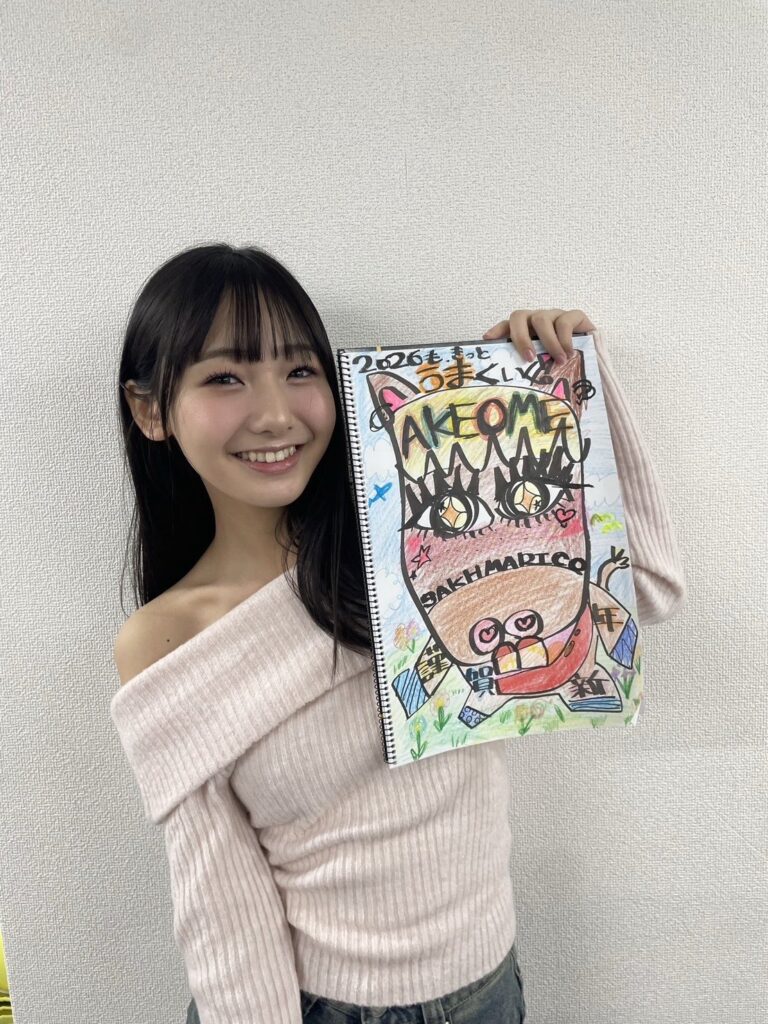 2026も、きっと
うまくいく!
AKEOME
SAKHMARICO
謹
賀
新
年